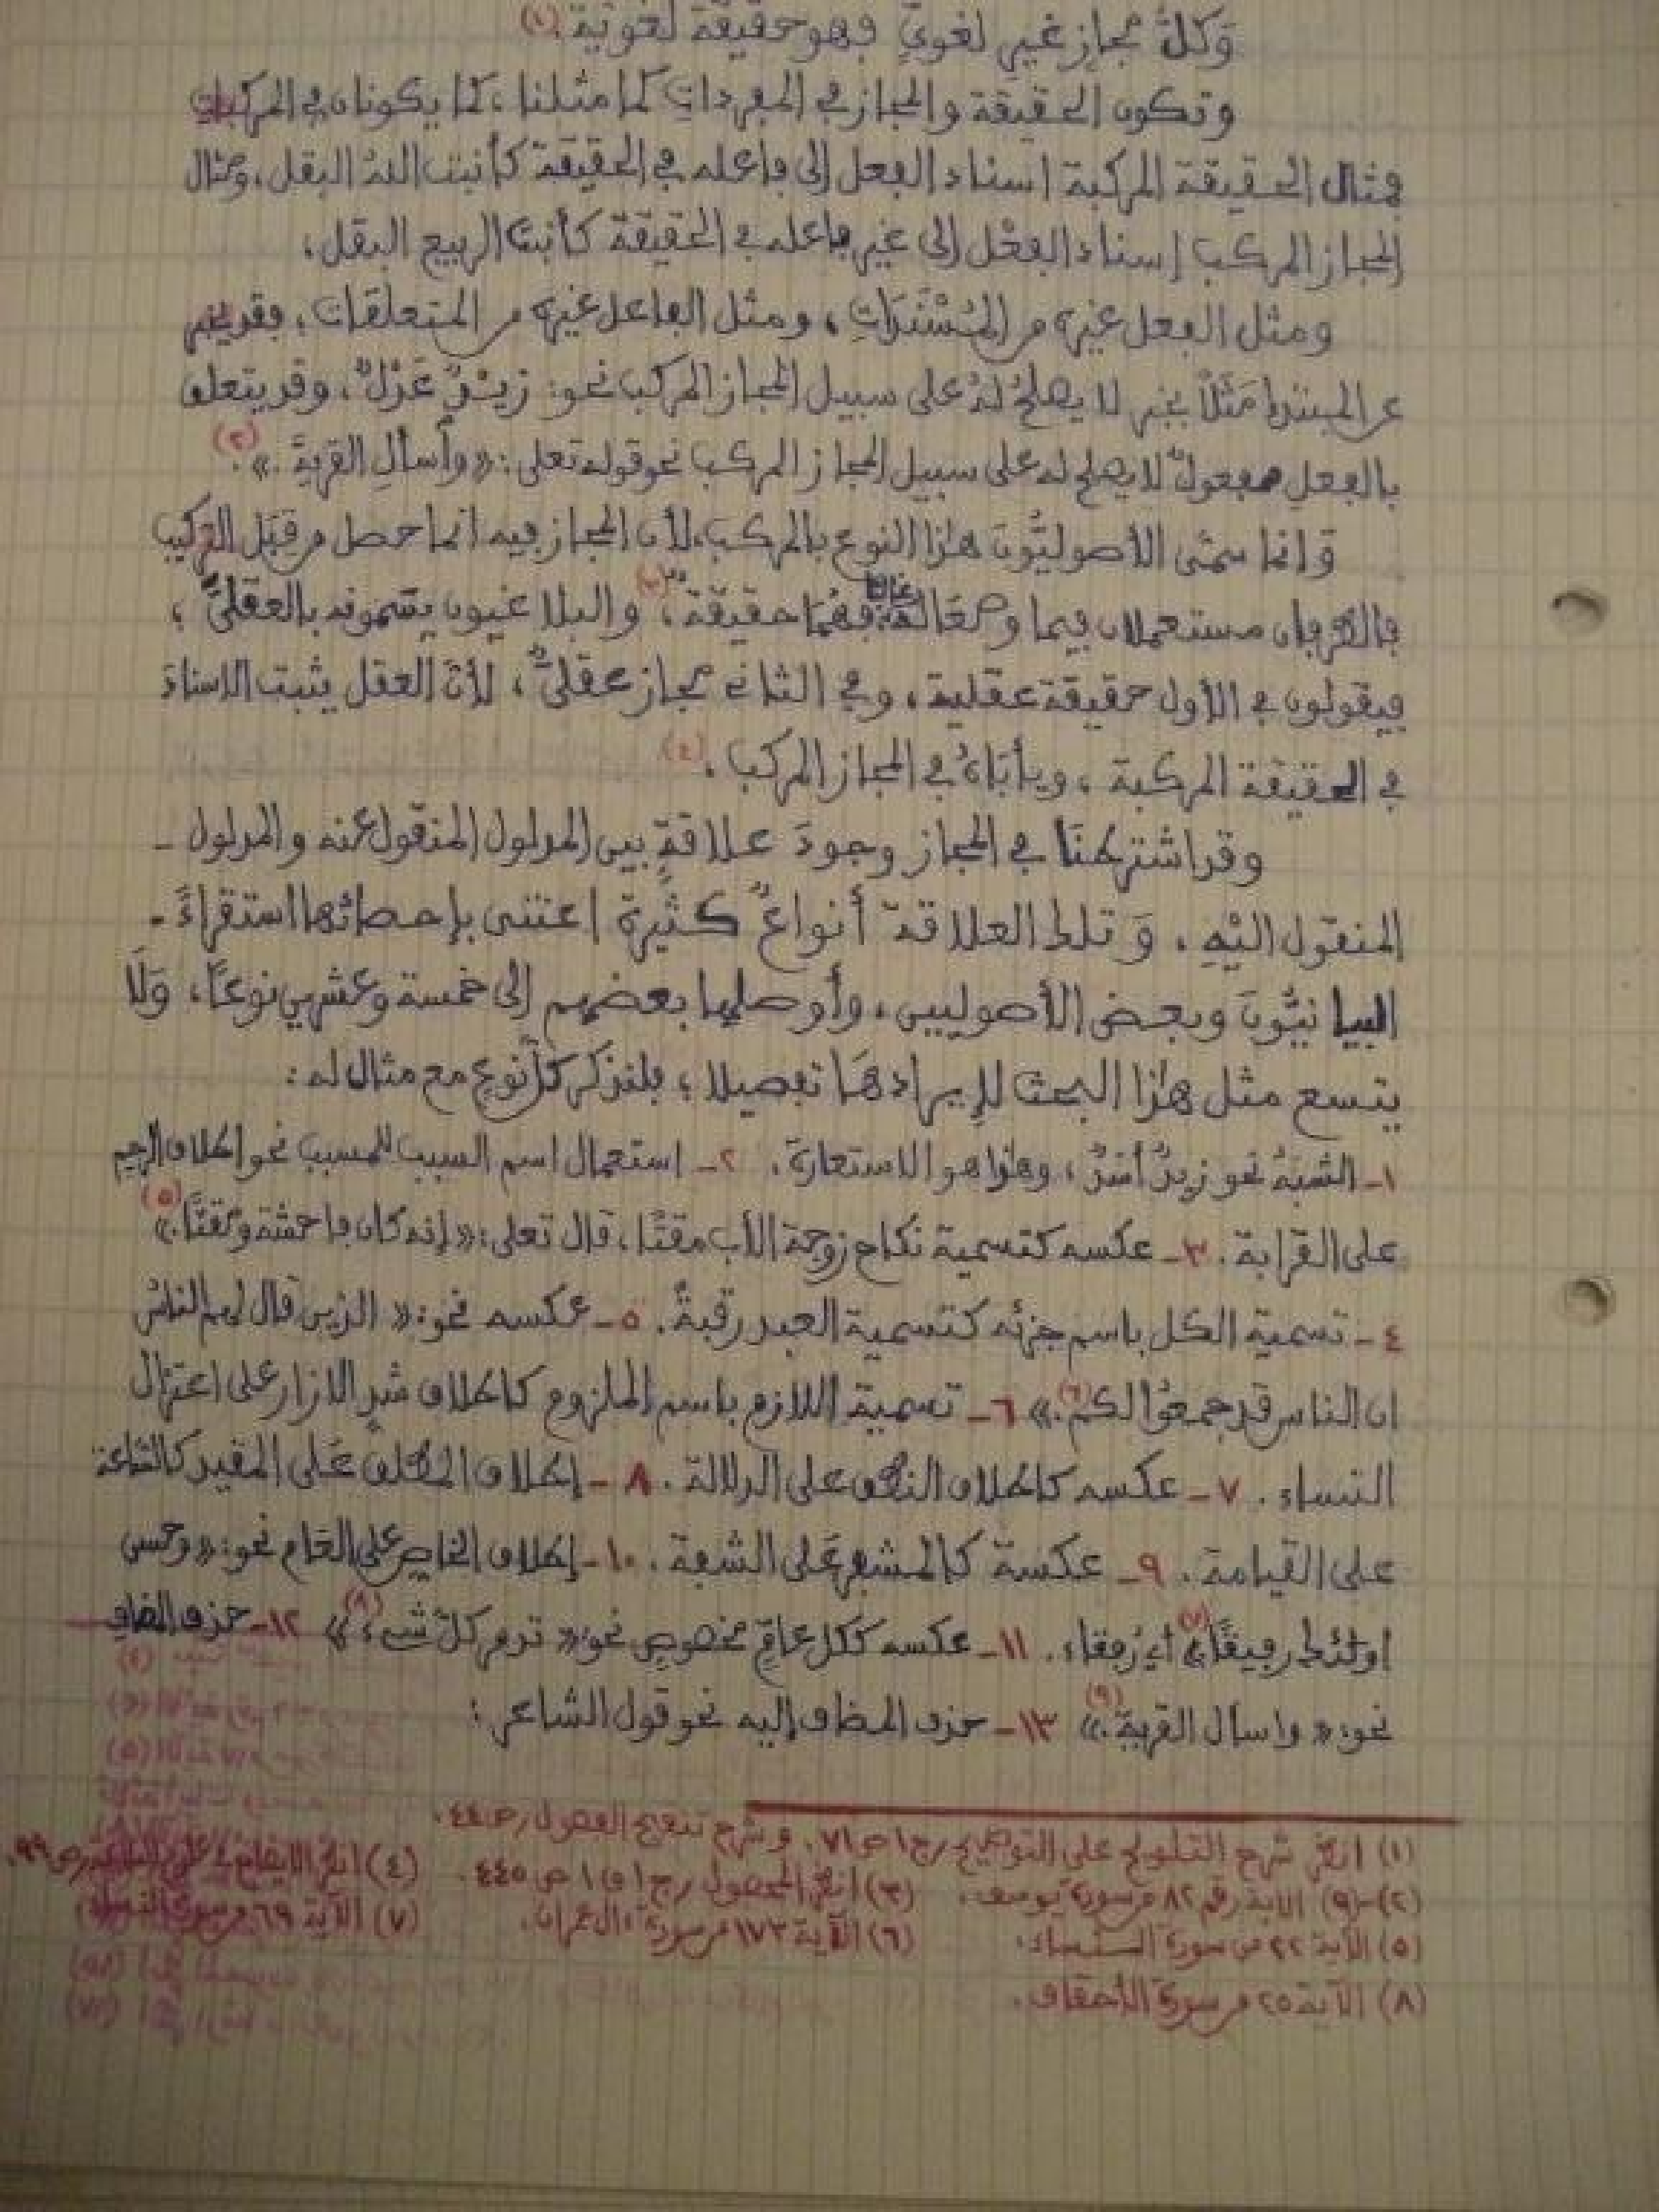 وَكلُّ مجاز غيرِ لغويٍّ فهو حقيقة لغوية (١)
وتكون الحقيقة والمجاز في المفرداتِ كما مثلنا، كما يكونان في المركبات
فمثال الحقيقة المركبة اسناد الفعل إلى فاعله في الحقيقة كأنبت اللهُ البقل، ومثال
المجاز المركب إسناد الفعْل إلى غير فاعله في الحقيقة كأنبت الربيع البقل.
ومثل الفعل غيره من المُسْنَدَاتِ، ومثل الفاعل غيره من المتعلقات، فقد يخبر
عن المبتدإ مَثَلاً بخبر لا يصلحُ لهُ على سبيل المجاز المركب نحو: زيْدٌ عَدْلٌ، وقد يتعلق
بالفعلِ مفعولٌ لا يصلح له على سبيل المجاز المركب نحو قوله تعلى: «وأسألِ القريةَ.» (٢).
وَانما سمَّى الأصوليُّونَ هذا النوع بالمركب، لأن المجاز فيه انما حصل من قِبَل التركيب
فالطرفان مستعملان فيما وضعَا لهُ غالبا فهُمَا حقيقة (٣)، والبلاغيون يسَمونه بالعقلىِّ؛
فيقولون في الأول حقيقة عقلية، وفي الثاني مجاز عقلىٌّ، لأنّ العقل يثبت الاسنادَ
في الحقيقة المركبة، ويأبَاهُ في المجاز المركب. (٤)
وقد اشترطنَا في المجاز وجودَ علاقةٍ بين المدلول المنقول عنه والمدلول -
المنقول اليْهِ، وَتلك العلاقة أنواعٌ كثيرة اعتنى بإحصائها استقراءً -
البيانيُّونَ وبعض الأصوليين، وأوصلها بعضهم إلى خمسة وعشرين نوعًا، وَلَا
يتسع مثل هذا البحث لإيرادهَا تفصيلا؛ فلنذكر كلّ نوع مع مثال له:
١- الشبَهُ نحو زيدٌ أسَدٌ، وهذا هو الاستعارة. ٢- استعمال اسم السبب للمسبب نحو اطلاق الرحم
على القرابة. ٣- عكسه كتسمية نكاح زوجة الأب مقتًا، قال تعلى: «إنه كان فاحشة ومقتًا.» (٥)
٤- تسمية الكل باسم جزئه كتسمية العبد رقبةً. ٥- عكسه نحو: «الذين قال لهم الناسُ
ان الناس قد جمعُوا لكمْ.» (٦) ٦- تسمية اللازم باسم الملزوم كاطلاق شدِ الازار على اعتزال
النساء. ٧- عكسه كاطلاق النطق على الدلالة. ٨- إطلاق المطلق على المقيد كالساعة
على القيامة. ٩- عكسة كالمشفر على الشفة. ١٠- إطلاق الخاص على العام نحو: «وحسن
اولئك رفيقًا» (٧) أي رُفقاء. ١١- عكسه ككل عامٍّ مخصوصٍ نحو: «تدمر كلّ شيء» (٨) ١٢- حذف المضاف
نحو: «واسأل القرية.» (٩) ١٣- حذف المضاف إليه نحو قول الشاعر:
(١) انظر شرح التلويح على التوضيح ج ١ ص ٧١. وشرح تنقيح الفصول ص ٤٤.
(٢)-(٩) الآية رقم ٨٢ من سورة يوسف. (٣) انظر المحصول ج ١ ق ١ ص ٤٤٥. (٤) انظر الايضاح ص ٩٩.
(٥) الآية ٢٢ من سورة النساء. (٦) الآية ١٧٣ من سورة ءال عمران. (٧) الآية ٦٩ من سورة النساء
(٨) الآية ٢٥ من سورة الأحقاف.